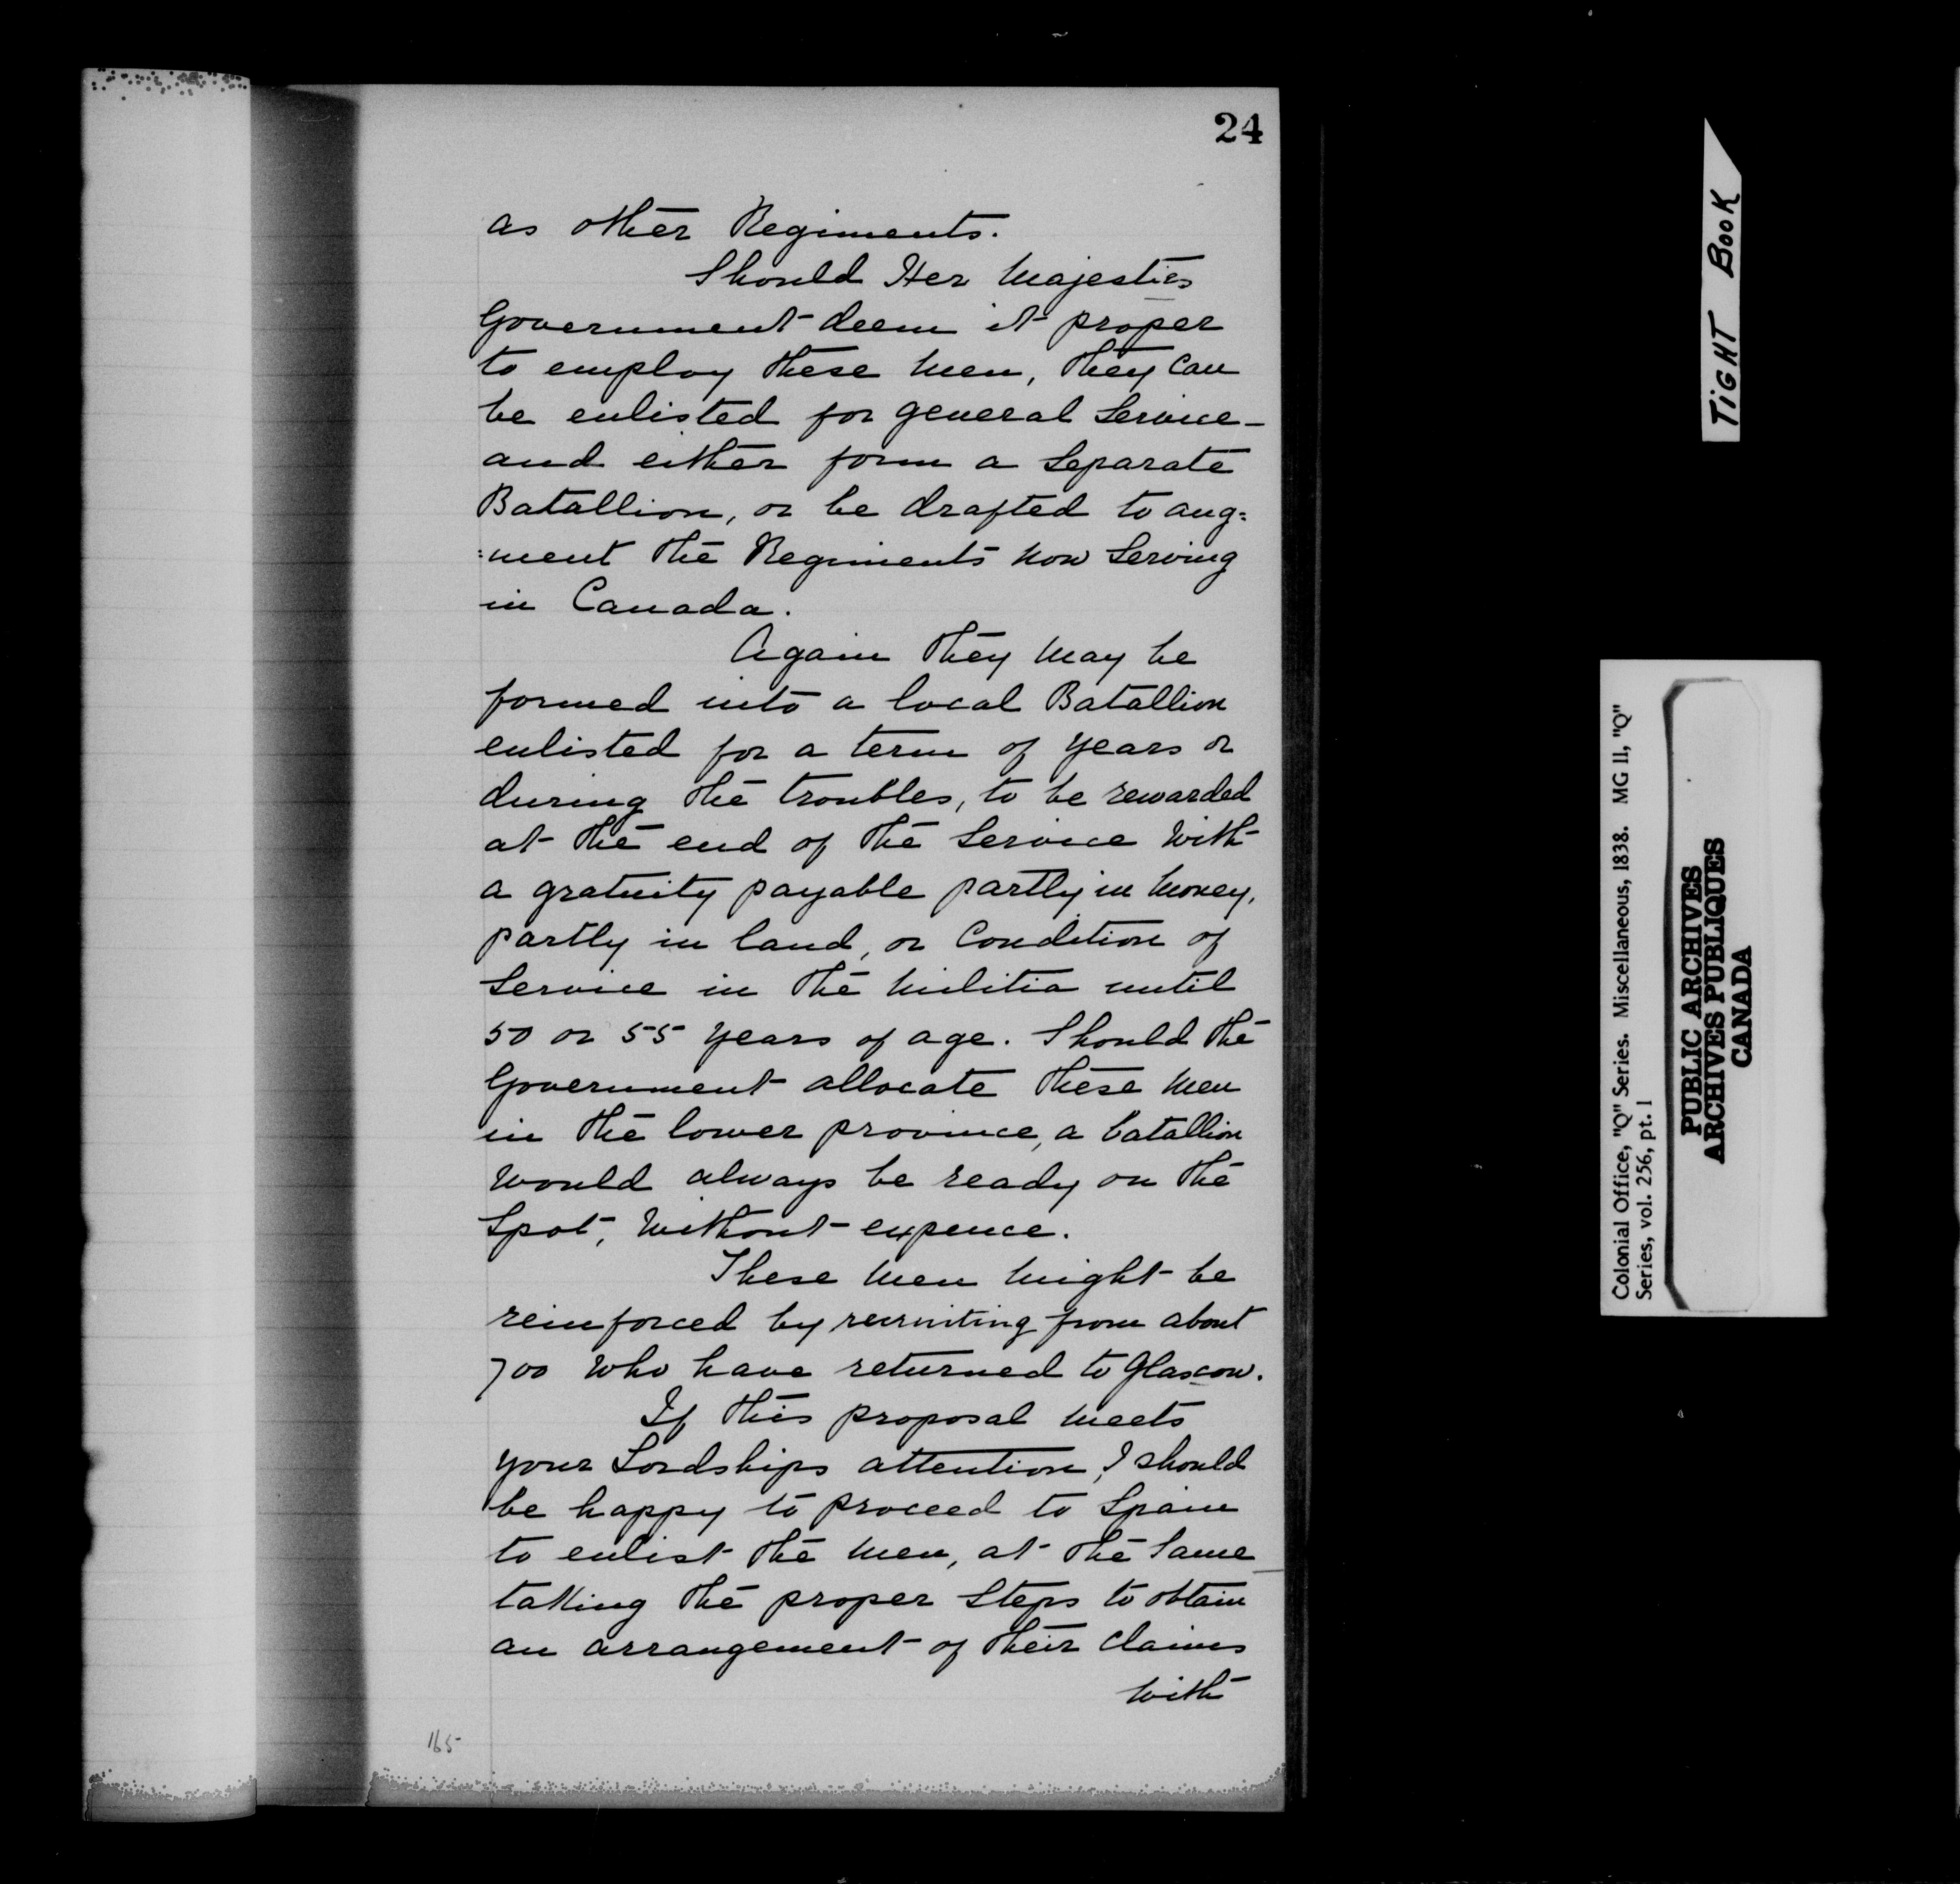 24
as other Regiments.
Should Her Majesties
Government deem it proper
to employ these men, they can
be enlisted for general Service -
and either form a Separate
Batallion, or be drafted to aug=
=ment the Regiments now Serving
in Canada.
Again they may be
formed into a local Batallion
enlisted for a term of years or
during the troubles, to be rewarded
at the end of the Service with
a gratuity payable partly in money,
partly in land, or Condition of
Service in the Militia until
50 or 55 years of age. Should the
Government allocate these men
in the lower province, a batallion
would always be ready on the
Spot, without expence.
These men might be
reinforced by recruiting from about
700 who have returned to Glascow.
If this proposal meets
your Lordships attention, I should
be happy to proceed to Spain
to enlist the men, at the Same
taking the proper Steps to obtain
an arrangement of their claims
with
165
TIGHT BOOK
Colonial Office, "Q" Series. Miscellaneous, 1838. MG 11, "Q"
Series, vol. 256, pt. 1
PUBLIC ARCHIVES
ARCHIVES PUBLIQUES
CANADA